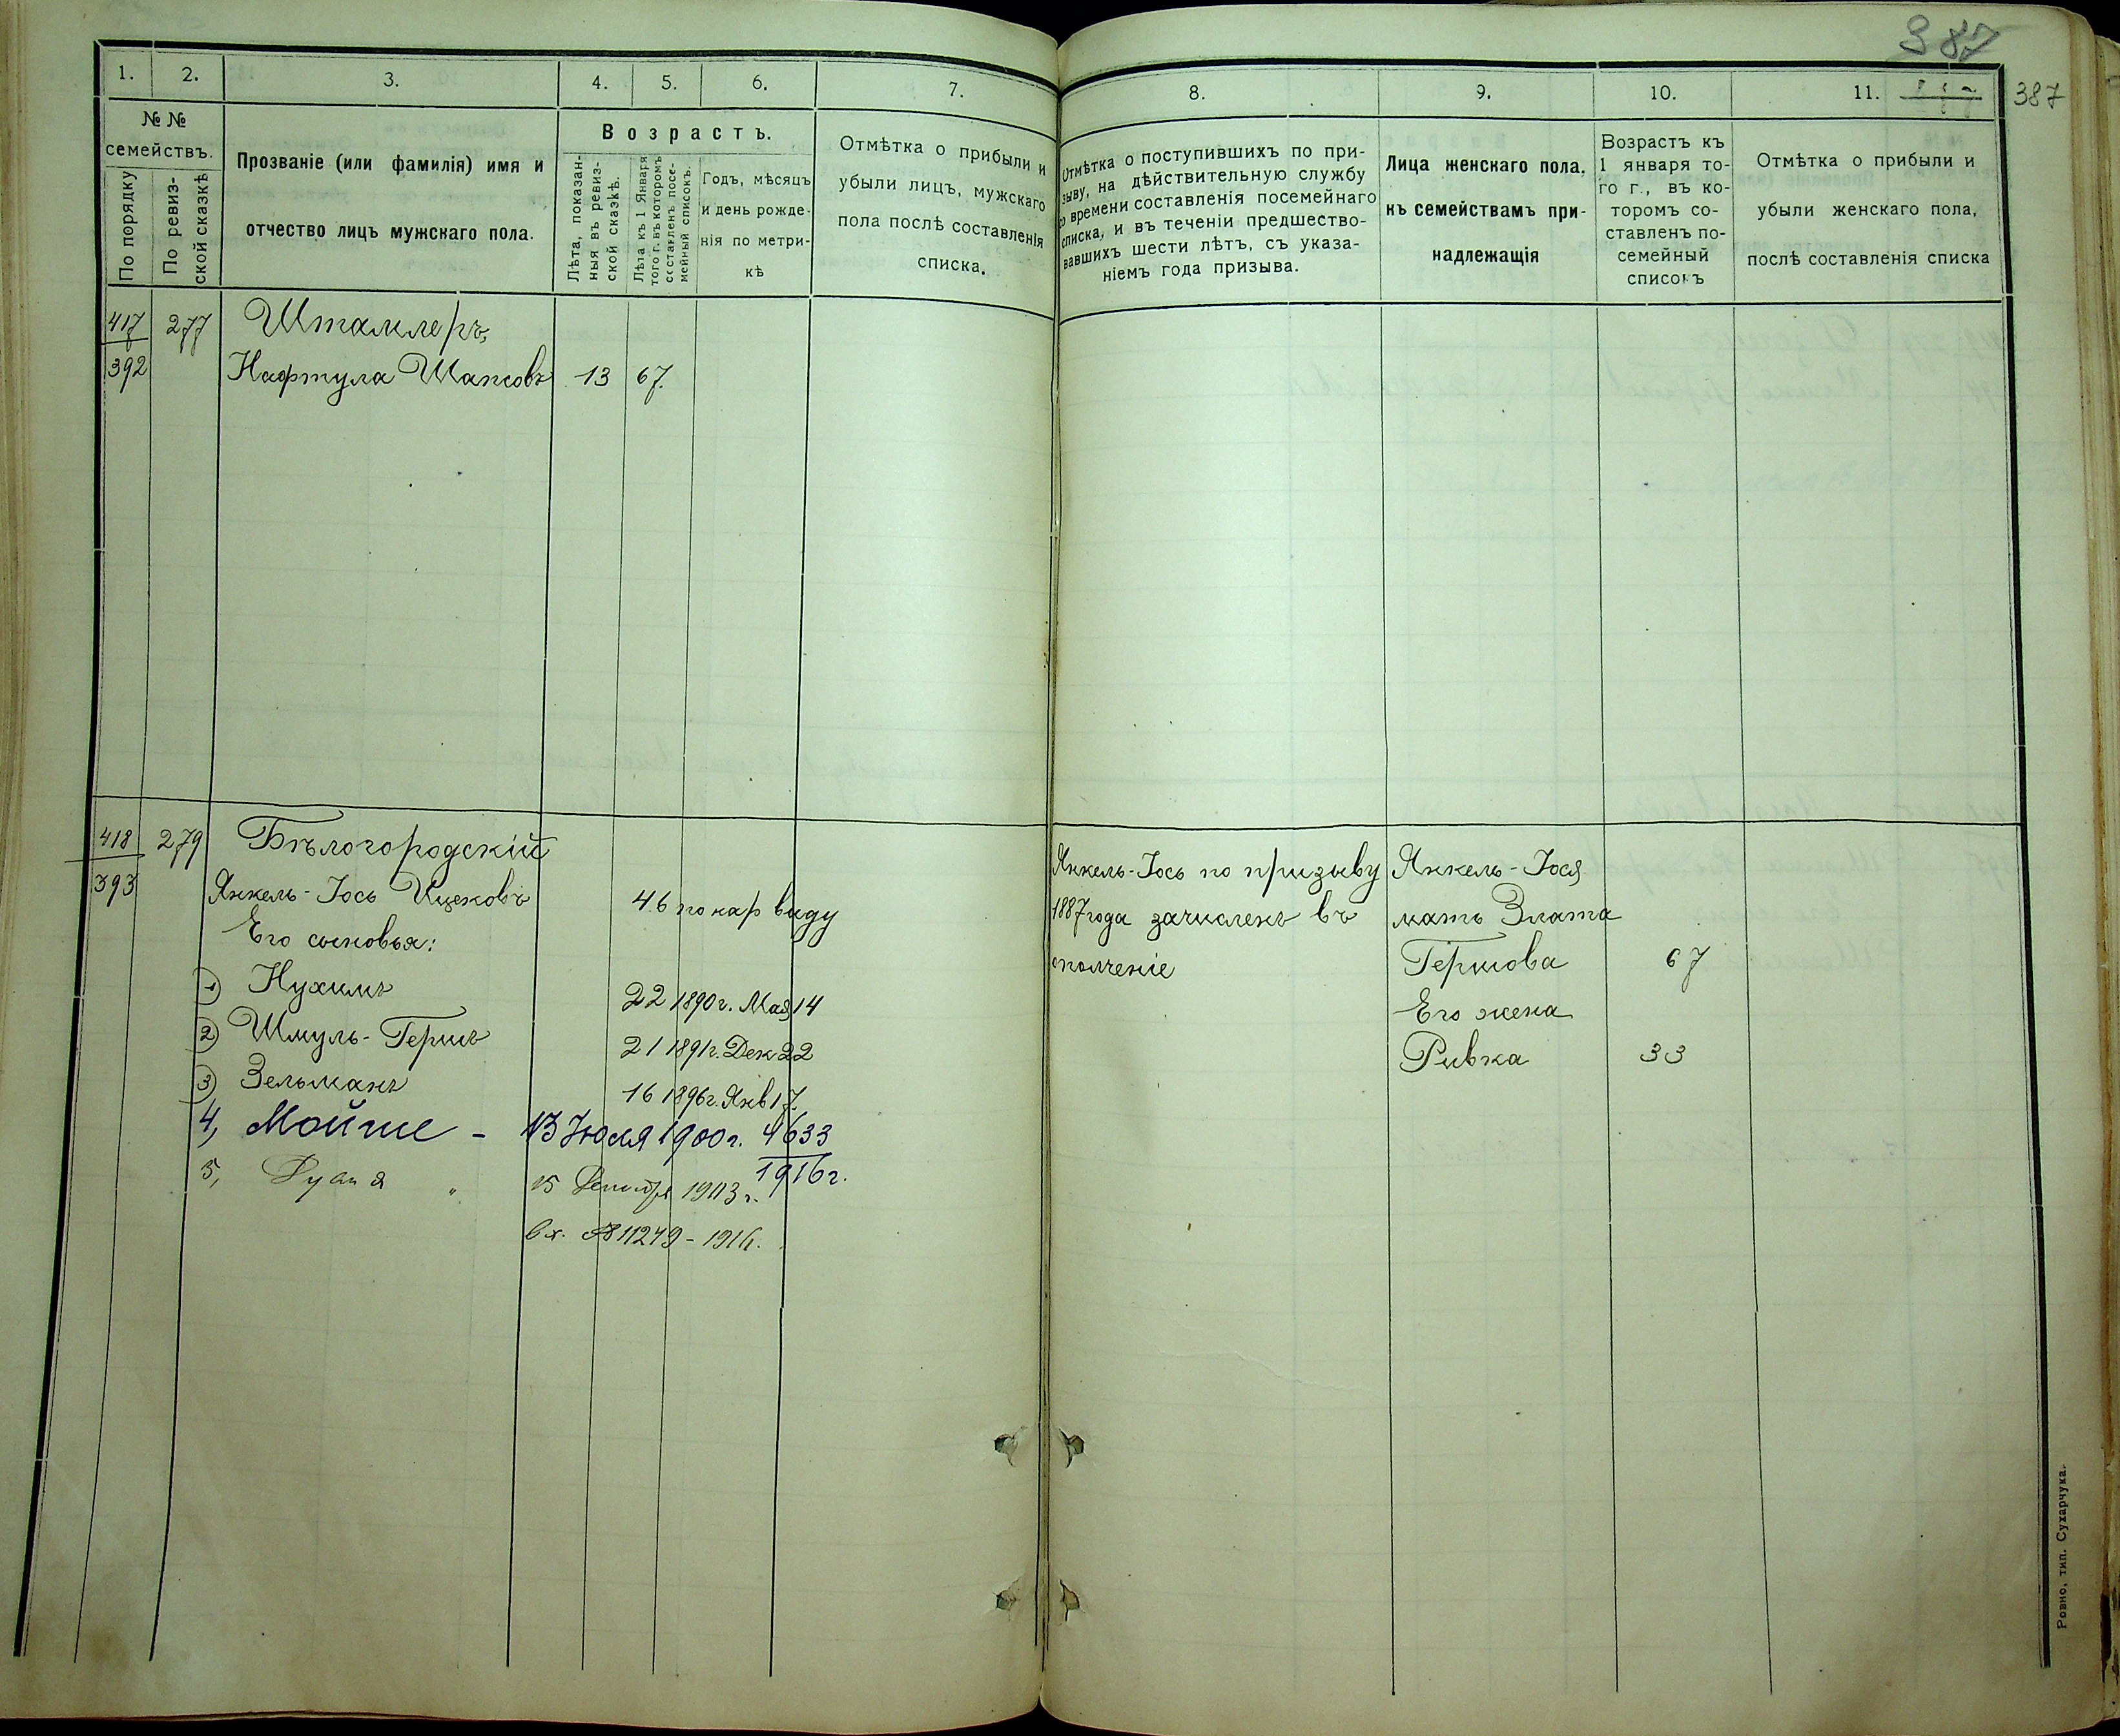 387
387
1. 2. 3. 4. 5. 6. 7.
№ № семействъ.
По порядку
По ревиз-
ской сказкѣ
Прозваніе (или фамилія) имя и
отчество лицъ мужскаго пола.
Возрастъ.
Лѣта, показан-
ныя въ ревиз-
ской сказкѣ.
Лѣта къ 1 Января
того г. въ которомъ
составленъ посе-
мейный списокъ.
Годъ, мѣсяцъ
и день рожде-
нія по метри-
кѣ
Отмѣтка о прибыли и
убыли лицъ, мужскаго
пола послѣ составленія
списка.
417 277 Штамлеръ,
392 Нафтула Шапсовъ 13 67.
418 279 Бѣлогородскій
393 Янкель-Іось Ицековъ 46 по нар виду
Его сыновья:
1) Нухимъ 22 1890 г. Мая 14
2) Шмуль-Гершъ 21 1891 г. Дек 22
3) Зельманъ 16 1896 г. Янв 17.
4, Мойше - 13 Іюля 1900 г. 4633
1916 г.
5, " 15 1903 г.
вх. № 11249 - 1916.
8. 9. 10. 11.
Отмѣтка о поступившихъ по при-
зыву, на дѣйствительную службу
со времени составленія посемейнаго
списка, и въ теченіи предшество-
вавшихъ шести лѣтъ, съ указа-
ніемъ года призыва.
Лица женскаго пола,
къ семействамъ при-
надлежащія
Возрастъ къ
1 января то-
го г., въ ко-
торомъ со-
ставленъ по-
семейный
списокъ
Отмѣтка о прибыли и
убыли женскаго пола,
послѣ составленія списка
Янкель-Іось по призыву
1887 года зачисленъ въ
ополченіе
Янкель-Іося
мать Злата
Гершова 67
Его жена
Ривка 33
Ровно, тип. Сухарчука.